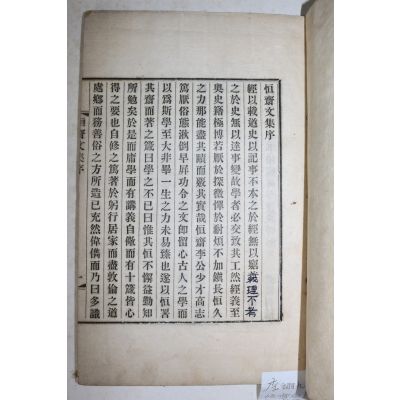 恒齋文集序
經以載道史以記事不本之於經無以窮義理不考
之於史無以達事變故學者必交致其工然經義至
奥史籍極博若厭於探微憚於耐煩不加鐭長恒久
之力那能盡其賾而覈其實哉恒齋李公少才高志
篤厭俗態漱倒早屏功令之文卽留心古人之學而
以爲斯學至大非畢一生之力未易臻也遂以恒署
其齋而著之箴曰學之不已曰惟其恒不懈益勤知
所勉矣於是而庸學而有講義自儆而有十箴皆心
得之要也自修之篤著於躬行居家而盡敦倫之道
處鄕而務善俗之方所造已充然偉儁而乃曰多識
恒齋文集序
一